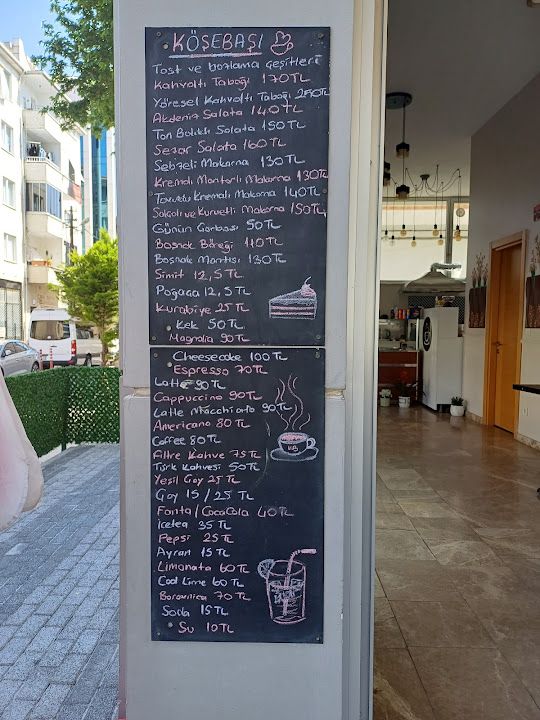 KÖŞEBAŞI
Tost ve bazlama çeşitleri
Kahvaltı Tabağı 170TL
Yöresel Kahvaltı Tabağı 250TL
Akdeniz Salata 140TL
Ton Balıklı Salata 150TL
Sezar Salata 160TL
Sebzeli Makarna 130TL
Kremalı Mantarlı Makarna 130TL
Tavuklu Kremalı Makarna 140TL
Salçalı ve Kuruetli Makarna 150TL
Günün Çorbası 50TL
Boşnak Böreği 110TL
Boşnak Mantısı 130TL
Simit 12,5TL
Poğaça 12,5TL
Kurabiye 25TL
Kek 50TL
Magnolia 90TL
Cheesecake 100TL
Espresso 70TL
Latte 90TL
Cappuccino 90TL
Latte Macchiato 90TL
Americano 80TL
Coffee 80TL
Filtre Kahve 75TL
Türk Kahvesi 50TL
Yeşil Çay 25TL
Çay 15/25 TL
Fanta/CocaCola 40TL
icetea 35TL
Pepsi 25TL
Ayran 15TL
Limonata 60TL
Cool Lime 60TL
70TL
Soda 15TL
Su 10TL
KB